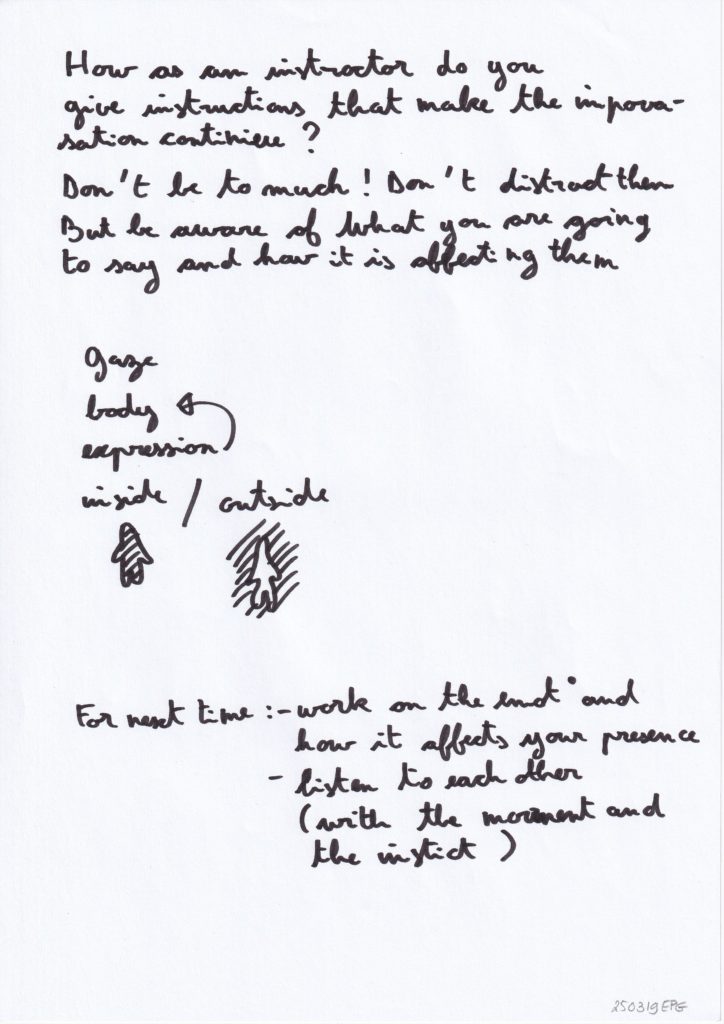 How as an instroctor do you
give instructions that make the impova-
sation continiere ?
Don't be to much ! Don't distract them
But be aware of what you are going
to say and how it is affecting them
gaze
body
expression
inside / outside
For next time : - work on the emot° and
how it affects your presence
- listen to each other
(with the movment and
the instict )
250319EPG